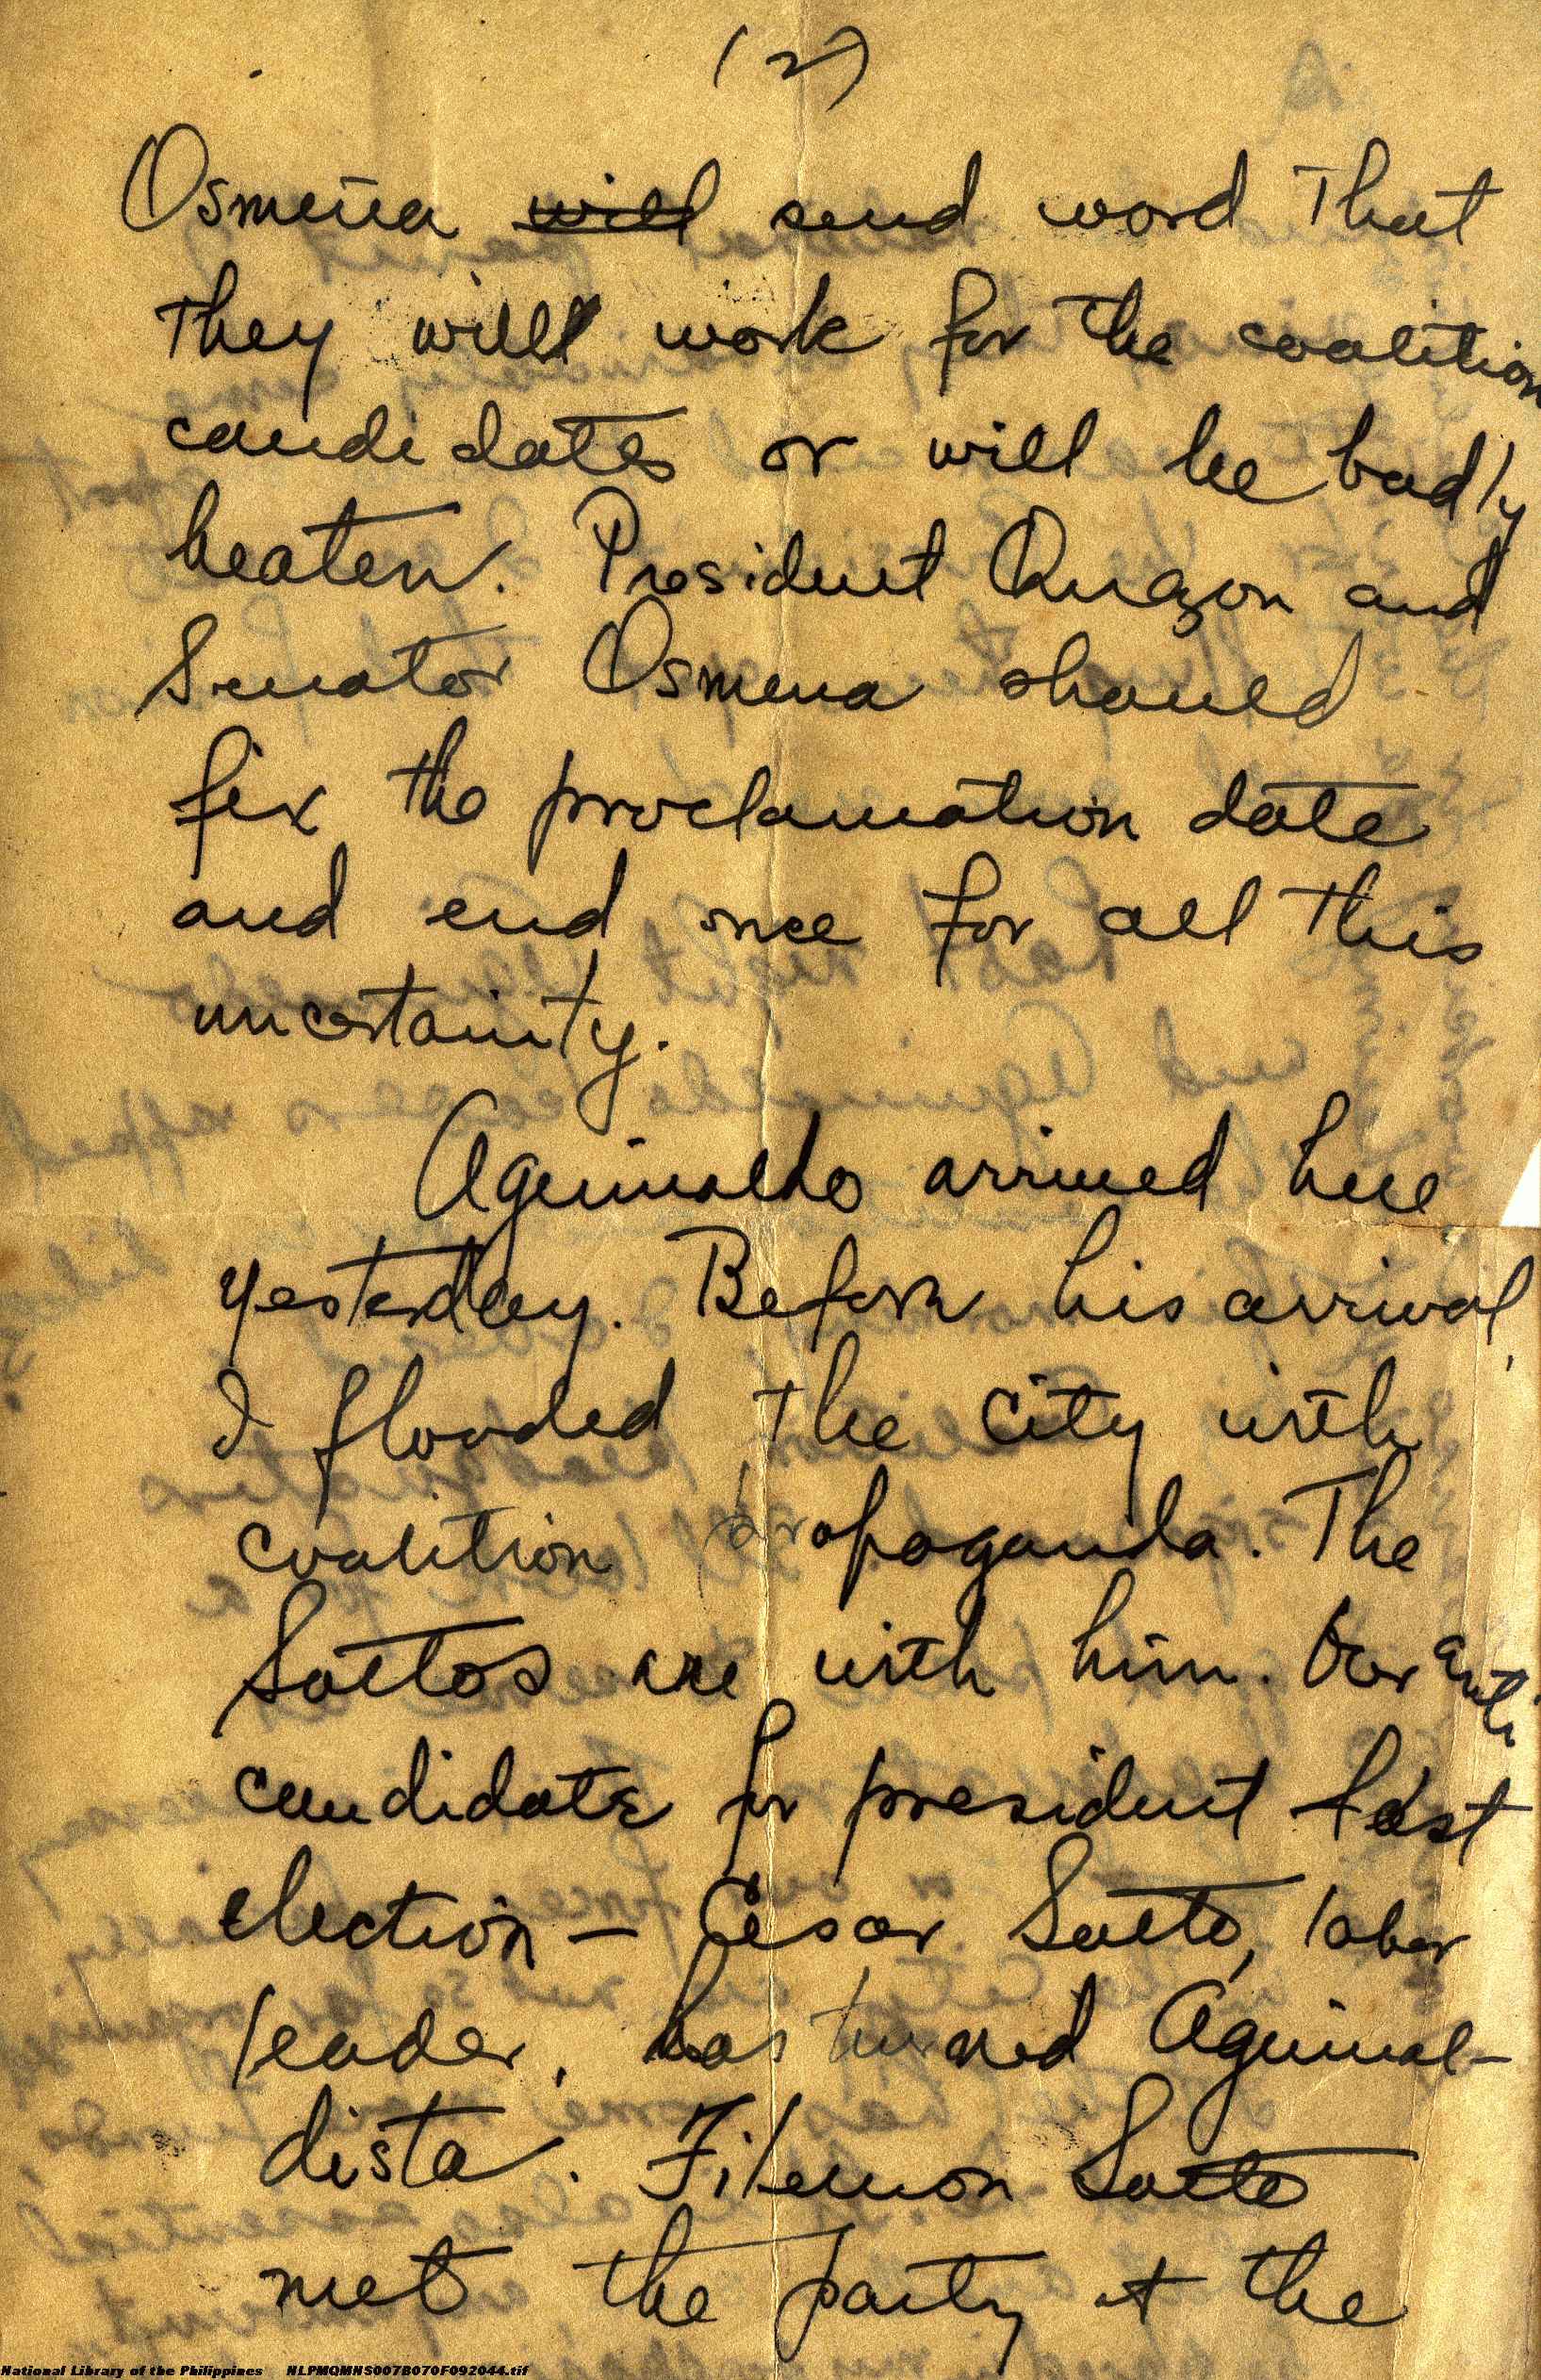 (2)
Osmeña will send word that
they will work for the coalition
candidates or will be badly
beaten. President Quezon and
Senator Osmena should
fix the proclamation date
and end once for all this
uncertainity.
Aguinaldo arrived here
yesterday. Before his arrival,
I flooded the city with
coalition propaganda. The
Sottos are with him. Our anti
candidate for president last
election — Cesar Sotto, labor
leader, has turned Aguinal-
dista. Filemon Sotto
met the party & the
National Library of the Philippines NLPMQMNS007B070F092044.tif